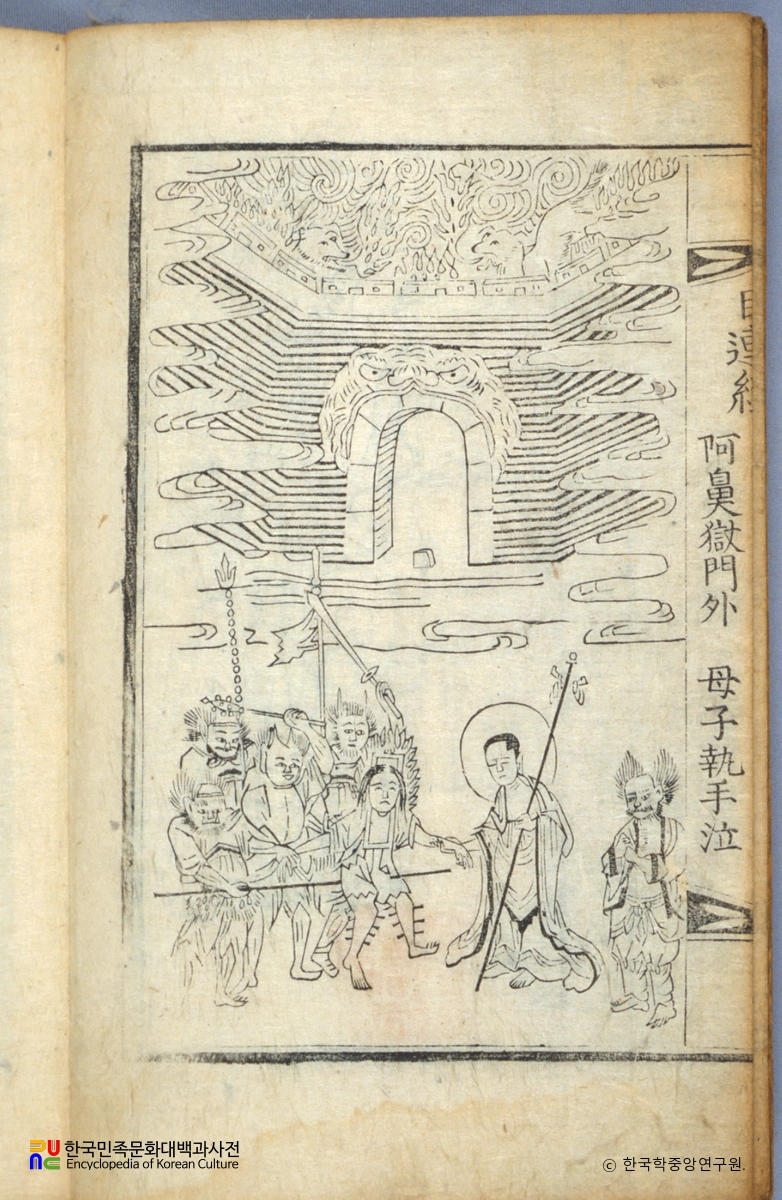 目連經
阿鼻獄門外 母子執手泣
한국민족문화대백과사전
Encyclopedia of Korean Culture
ⓒ 한국학중앙연구원.